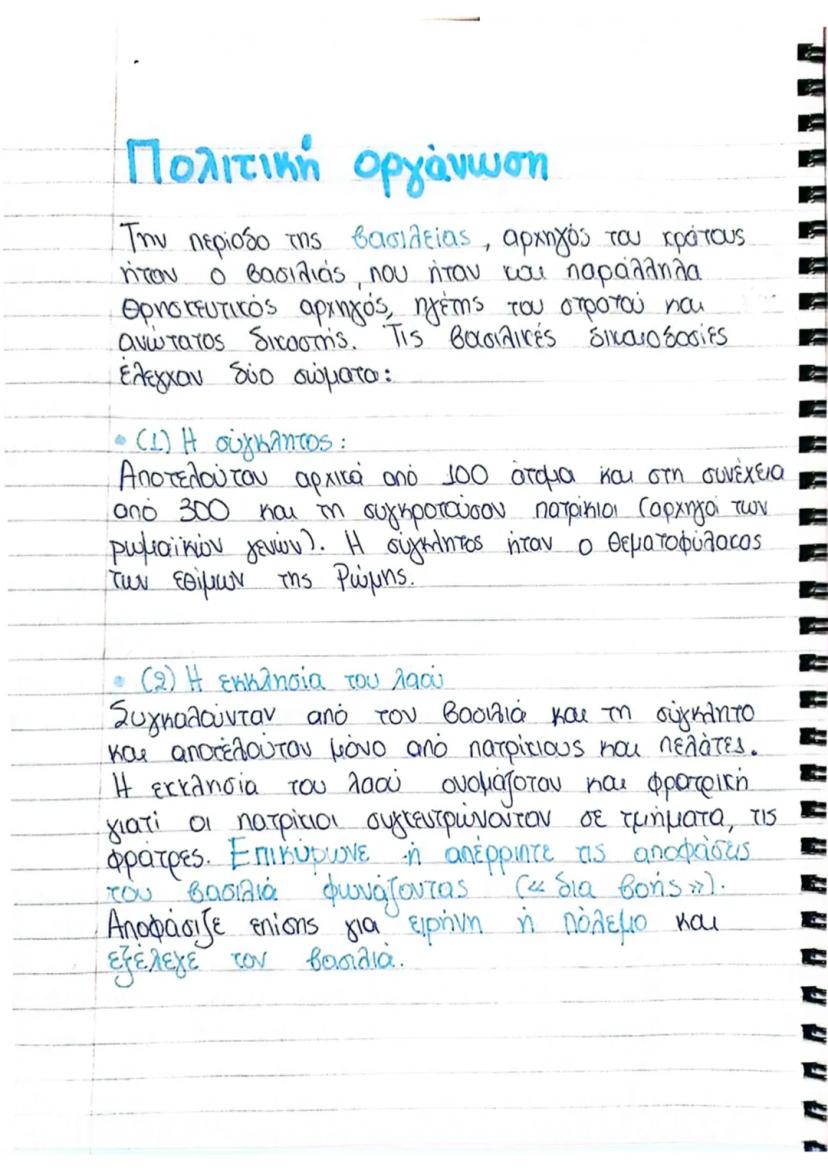 Πολιτική οργάνωση
Την περίοδο της βασιλείας, αρχηγός του κράτους
ήταν ο βασιλιάς, που ήταν και παράλληλα
θρησκευτικός αρχηγός, ηγέτης του στρατού και
ανώτατος δικαστής. Τις βασιλικές δικαιοδοσίες
έλεγχαν δύο σώματα:
• (1) Η σύγκλητος:
Αποτελούταν αρχικά από 100 άτομα και στη συνέχεια
από 300 και τη συγκροτούσαν πατρίκιοι (αρχηγοί των
ρωμαϊκών γενών). Η σύγκλητος ήταν ο θεματοφύλακας
των εθίμων της Ρώμης.
• (2) Η εκκλησία του λαού
Συγκαλούνταν από τον βασιλιά και τη σύγκλητο
και αποτελούταν μόνο από πατρίκιους και πελάτες.
Η εκκλησία του λαού ονομάζοταν και φρατρική
γιατί οι πατρίκιοι συγκεντρώνονταν σε τμήματα, τις
φράτρες. Επικύρωνε ή απέρριπτε τις αποφάσεις
του βασιλιά φωνάζοντας (« δια βοής »).
Αποφάσιζε επίσης για ειρήνη ή πόλεμο και
εξέλεγε τον βασιλιά.